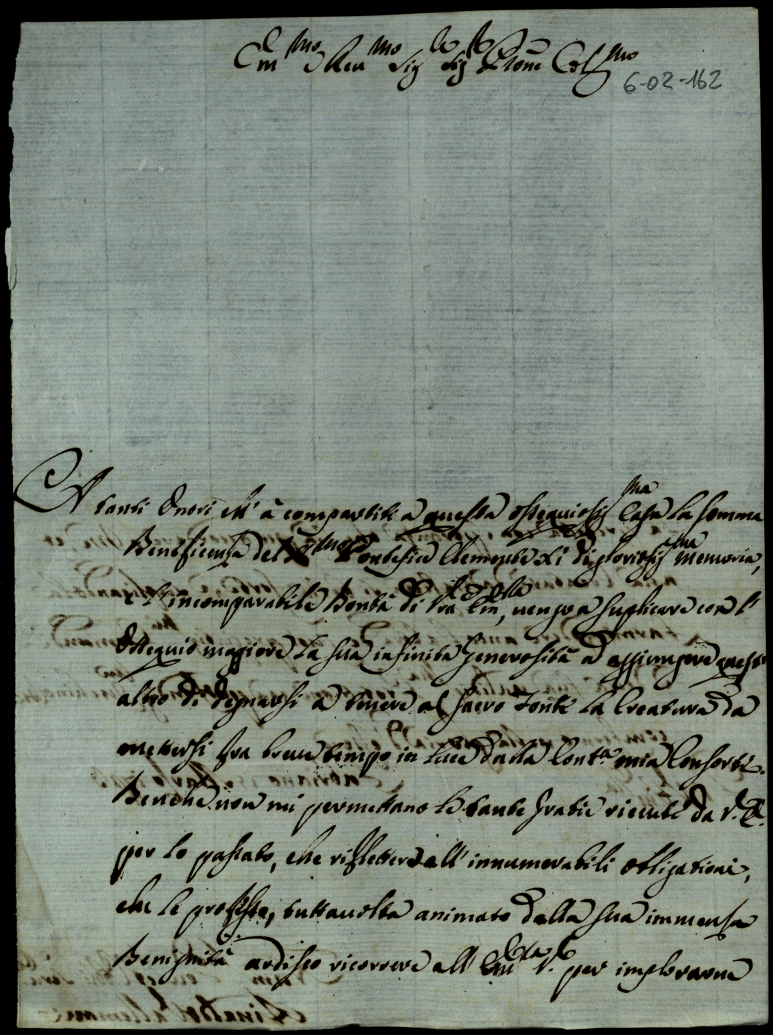 Em.mo e Rev.mo Sig.r Sig.r P.rone Col.mo
6-02-162
A tanti onori ch' à compartiti a questa ossequiosiss.ma Casa la somma
Beneficenza del Pontefice Clemente XI di gloriosiss.ma memoria,
l'incomparabile bontà di Vra Em., vengo a suplicare con l'
ossequio maggiore la sua infinita generosità ad aggiungere quest'
altro di degnarsi di tenere al Sacro Fonte la Creatura da
mettersi fra breve tempo in luce dalla Cont.a mia Consorte.
Benche non mi permettano le tante gratie ricevute da V.E.
per lo passato, che riflettere all' innumerabili obligationi,
che le professo, tuttavolta animato dalla sua immensa
Benignità ardisco ricorrere all' Em. V. per implorarne